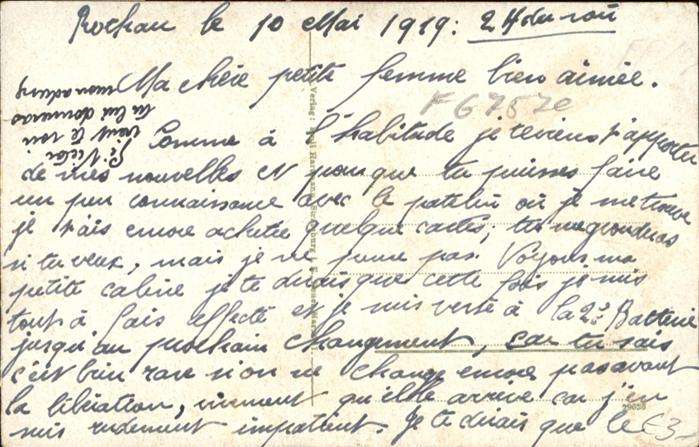 Rochau le 10 Mai 1919: 2 H du soir
Ma chère petite femme bien aimée.
F 6787e
Comme à l'habitude je reviens t'apporter
de mes nouvelles et pour que tu puisses faire
un peu connaissance avec le patelin où je me trouve
je t'ais encore acheter quelque cartes, tu me gronderas
si tu veux, mais je ne pense pas. Voyons ma
petite caline je te dirais que cette fois je suis
tout à fais affecté et je suis versé à la 2e Batterie
jusqu'au prochain changement, car tu sais
c'est bien rare si on ne change encore pas avant
la libération, vivement qu'elle arrive car j'en
suis rudement impatient. Je te dirais que le
E3
si Victor
veut le
tu lui donneras
mon adresse
Verlag: